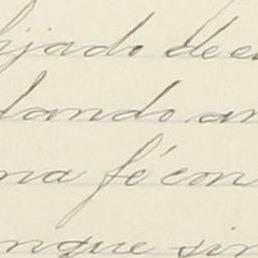 hijado de
dando an
na fé con
nque sin